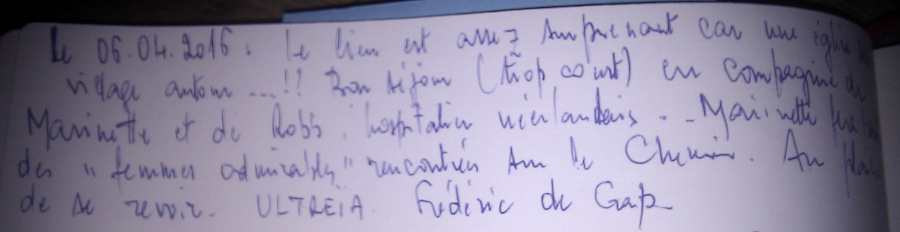 Le 06.04.2016 : Le lieu est assez surprenant car une église
village autour ...!! Bon séjour (trop court) en compagnie de
Marinette et de Robb, hospitalier néerlandais. - Marinette
des "femmes admirables" rencontrées sur le Chemin. Au plaisir
de se revoir. ULTREÏA Frédéric de Gap